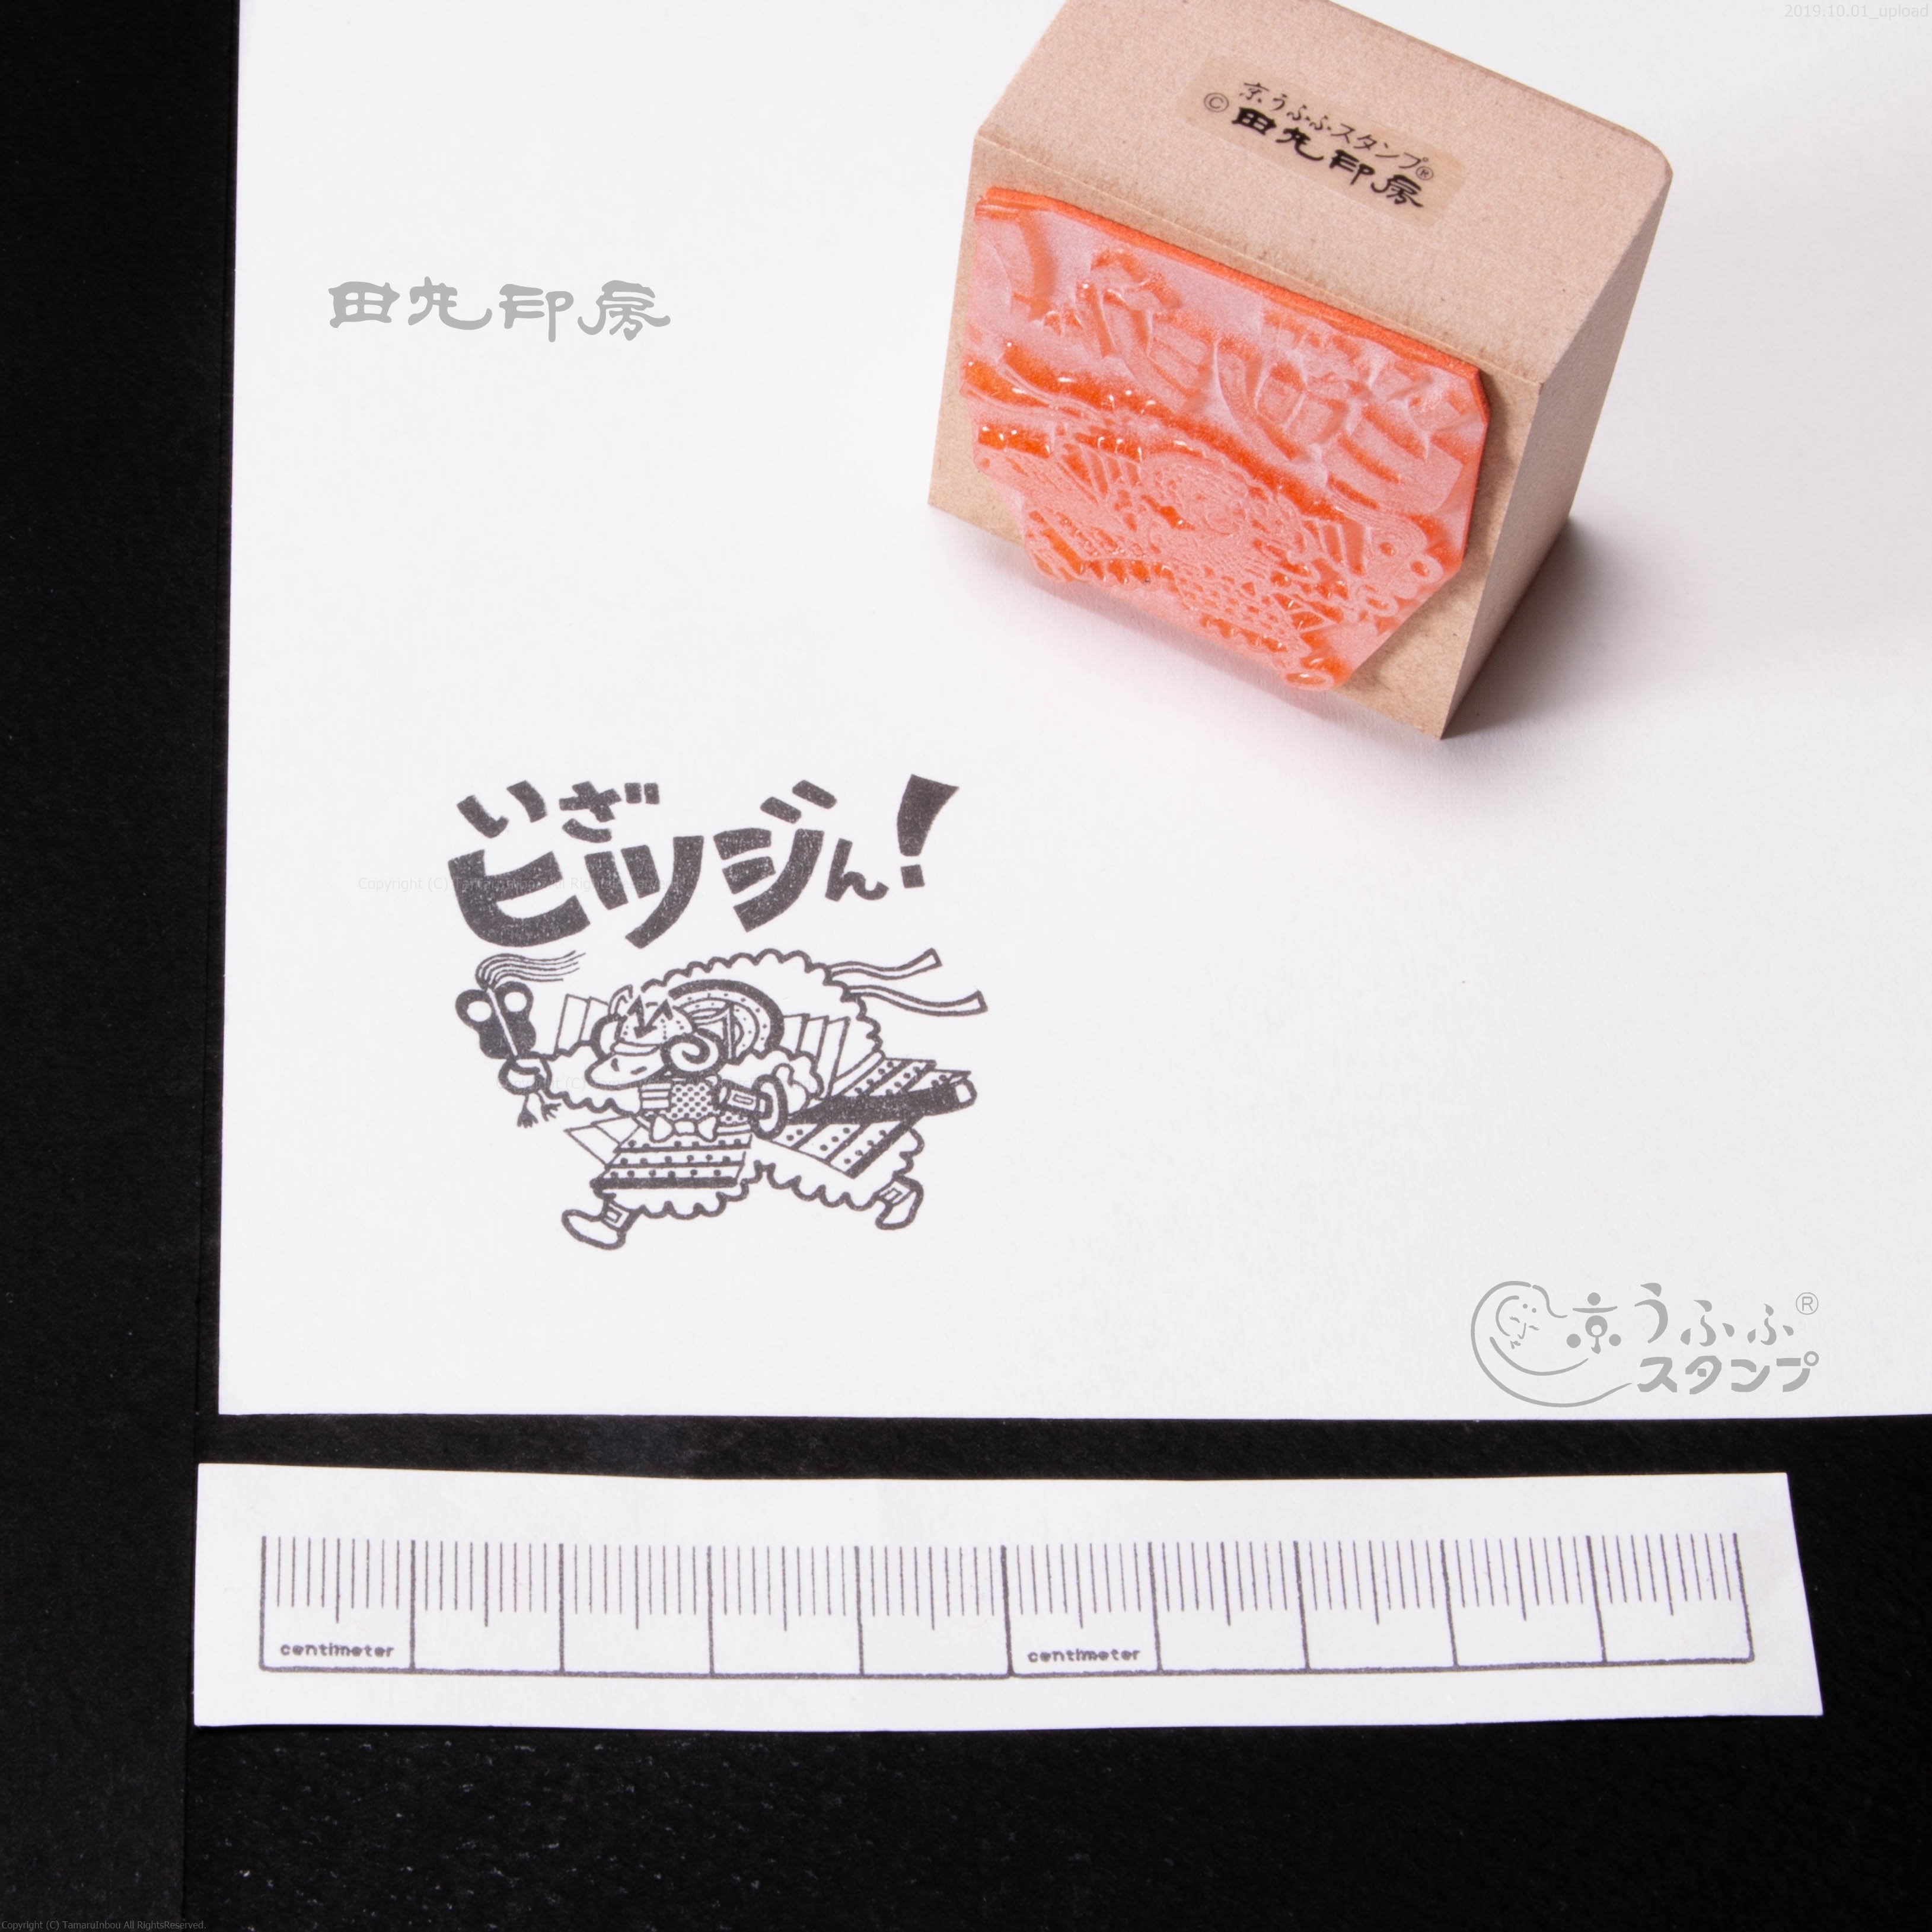 2019.10.01_upload
京うふふスタンプ®
© 田丸印房
田丸印房
いざ
ヒツジん!
Copyright (C)
京うふふ®
スタンプ
centimeter centimeter
Copyright (C) TamaruInbou All RightsReserved.